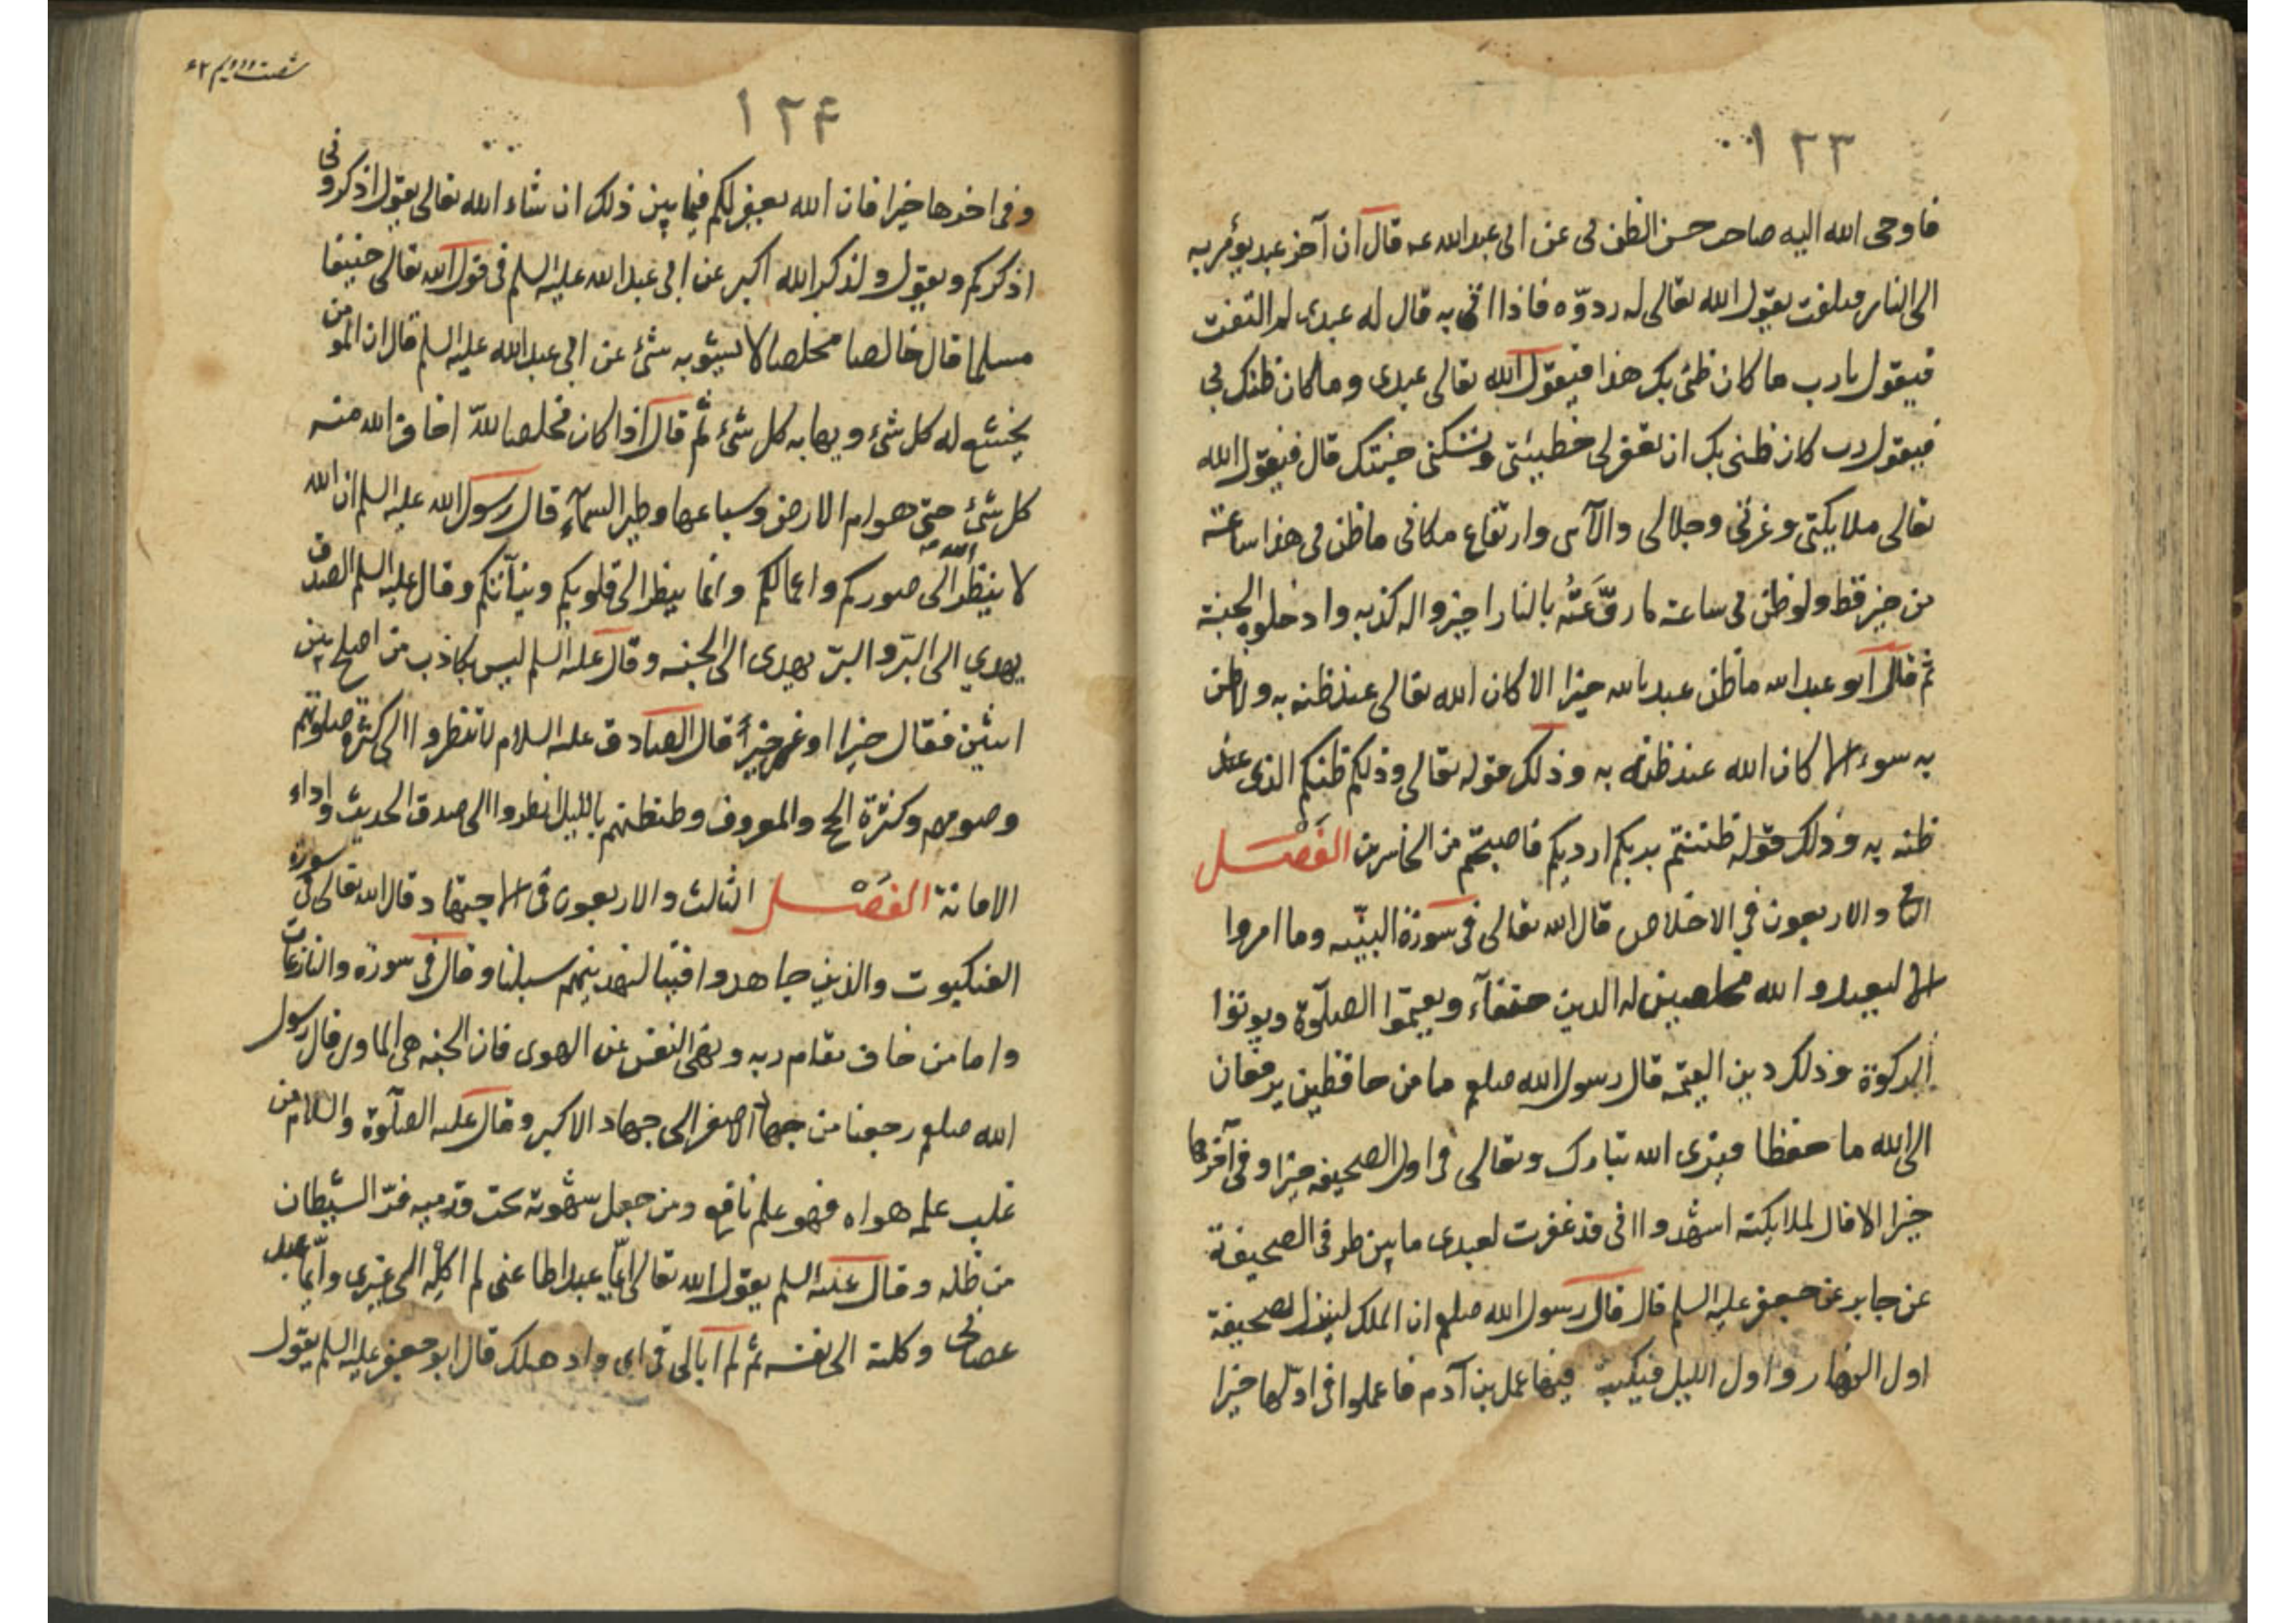 ١٢٣
فاوحى الله اليه صاحب حسن الظن بى عن ابى عبدالله عه قال ان آخر عبد يؤمر به
الى النار فيلتفت يقول الله تعالى له ردوّه فاذا اتى به قال له عبدى لم التفت
فيقول يا رب ما كان ظنى بك هذا فيقول الله تعالى عبدى وما كان ظنك بى
فيقول رب كان ظنى بك ان تغفر لى خطيئتى وتسكنى جنتك قال فيقول الله
تعالى ملايكتى وعزتى وجلالى والآئى وارتفاع مكانى ما ظن بى هذا ساعته
من خير قط ولو ظن بى ساعته ما روّعته بالنار اجيزوا له كذبه وادخلوه الجنة
ثم قال ابو عبدالله ما ظن عبد بالله خيرا الا كان الله تعالى عند ظنه به ولا ظن
به سوءا الا كان الله عند ظنه به وذلك قوله تعالى وذلكم ظنكم الذى عند
ظنه به وذلك قوله ظننتم بربكم ارديكم فاصبحتم من الخاسرين الفصل
والاربعون فى الاخلاص قال الله تعالى فى سورة البيّنه وما امروا
الا ليعبدوا الله مخلصين له الدين حنفآء ويقيموا الصلوة ويوتوا
الزكوة وذلك دين القيّمه قال رسول الله صلعم ما من حافظين يرفعان
الى الله ما حفظا فيرى الله تبارك وتعالى فى اول الصحيفه خيرا وفى آخرها
خيرا الا قال لملايكته اشهدوا انى قد غفرت لعبدى ما بين طرفى الصحيفة
عن جابر عن جعفر عليه السلم قال قال رسول الله صلعم ان الملك لينزل لصحيفة
اول النهار واول الليل فيكتب فيها عمل بن آدم فاعملوا فى اولها خيرا
شصت ودويم ٦٢
١٢٤
وفى اخرها خيرا فان الله يغفر لكم فيما بين ذلك ان شاء الله تعالى يقول اذكرونى
اذكركم ويقول ولذكر الله اكبر عن ابى عبدالله عليه السلم فى قول الله تعالى حنيفا
مسلما قال خالصا مخلصا لا يشوبه شئ عن ابى عبدالله عليه السلم قال ان المومن
يخشع له كل شئ ويهابه كل شئ ثم قال اذا كان مخلصا للّه اخاف الله منه
كل شئ حتى هوام الارض وسباعها وطير السمآء قال رسول الله عليه السلم ان الله
لا ينظر الى صوركم واعمالكم وانما ينظر الى قلوبكم ونيآتكم وقال عليه السلم الصدق
يهدي الى البرّ والبرّ يهدى الى الجنه وقال عليه السلم ليس بكاذب من اصلح بين
اثنين فقال خيرا او نمى خيراً قال الصادق عليه السلام لا تنظروا الى كثرة صلوتهم
وصومهم وكثرة الحج والمعروف وطنطنتهم بالليل انظروا الى صدق الحديث واداء
الامانة الفصل الثالث والاربعون فى الاجتهاد قال الله تعالى فى سورة
العنكبوت والذين جاهدوا فينا لنهدينهم سبلنا وقال فى سورة والنازعات
واما من خاف مقام ربه ونهى النفس عن الهوى فان الجنه هى الماوى قال رسول
الله صلعم رجعنا من جهاد الاصغر الى جهاد الاكبر وقال عليه الصلوة والسلام من
غلب علمه هواه فهو علم نافع ومن جعل شهوته تحت قدميه فرّ الشيطان
من ظله وقال عليه السلم يقول الله تعالى ايّما عبد اطاعنى لم اكله الى غيرى وايّما عبد
عصانى وكلته الى نفسه ثم لم ابالى فى اى واد هلك قال ابو جعفر عليه السلم يقول